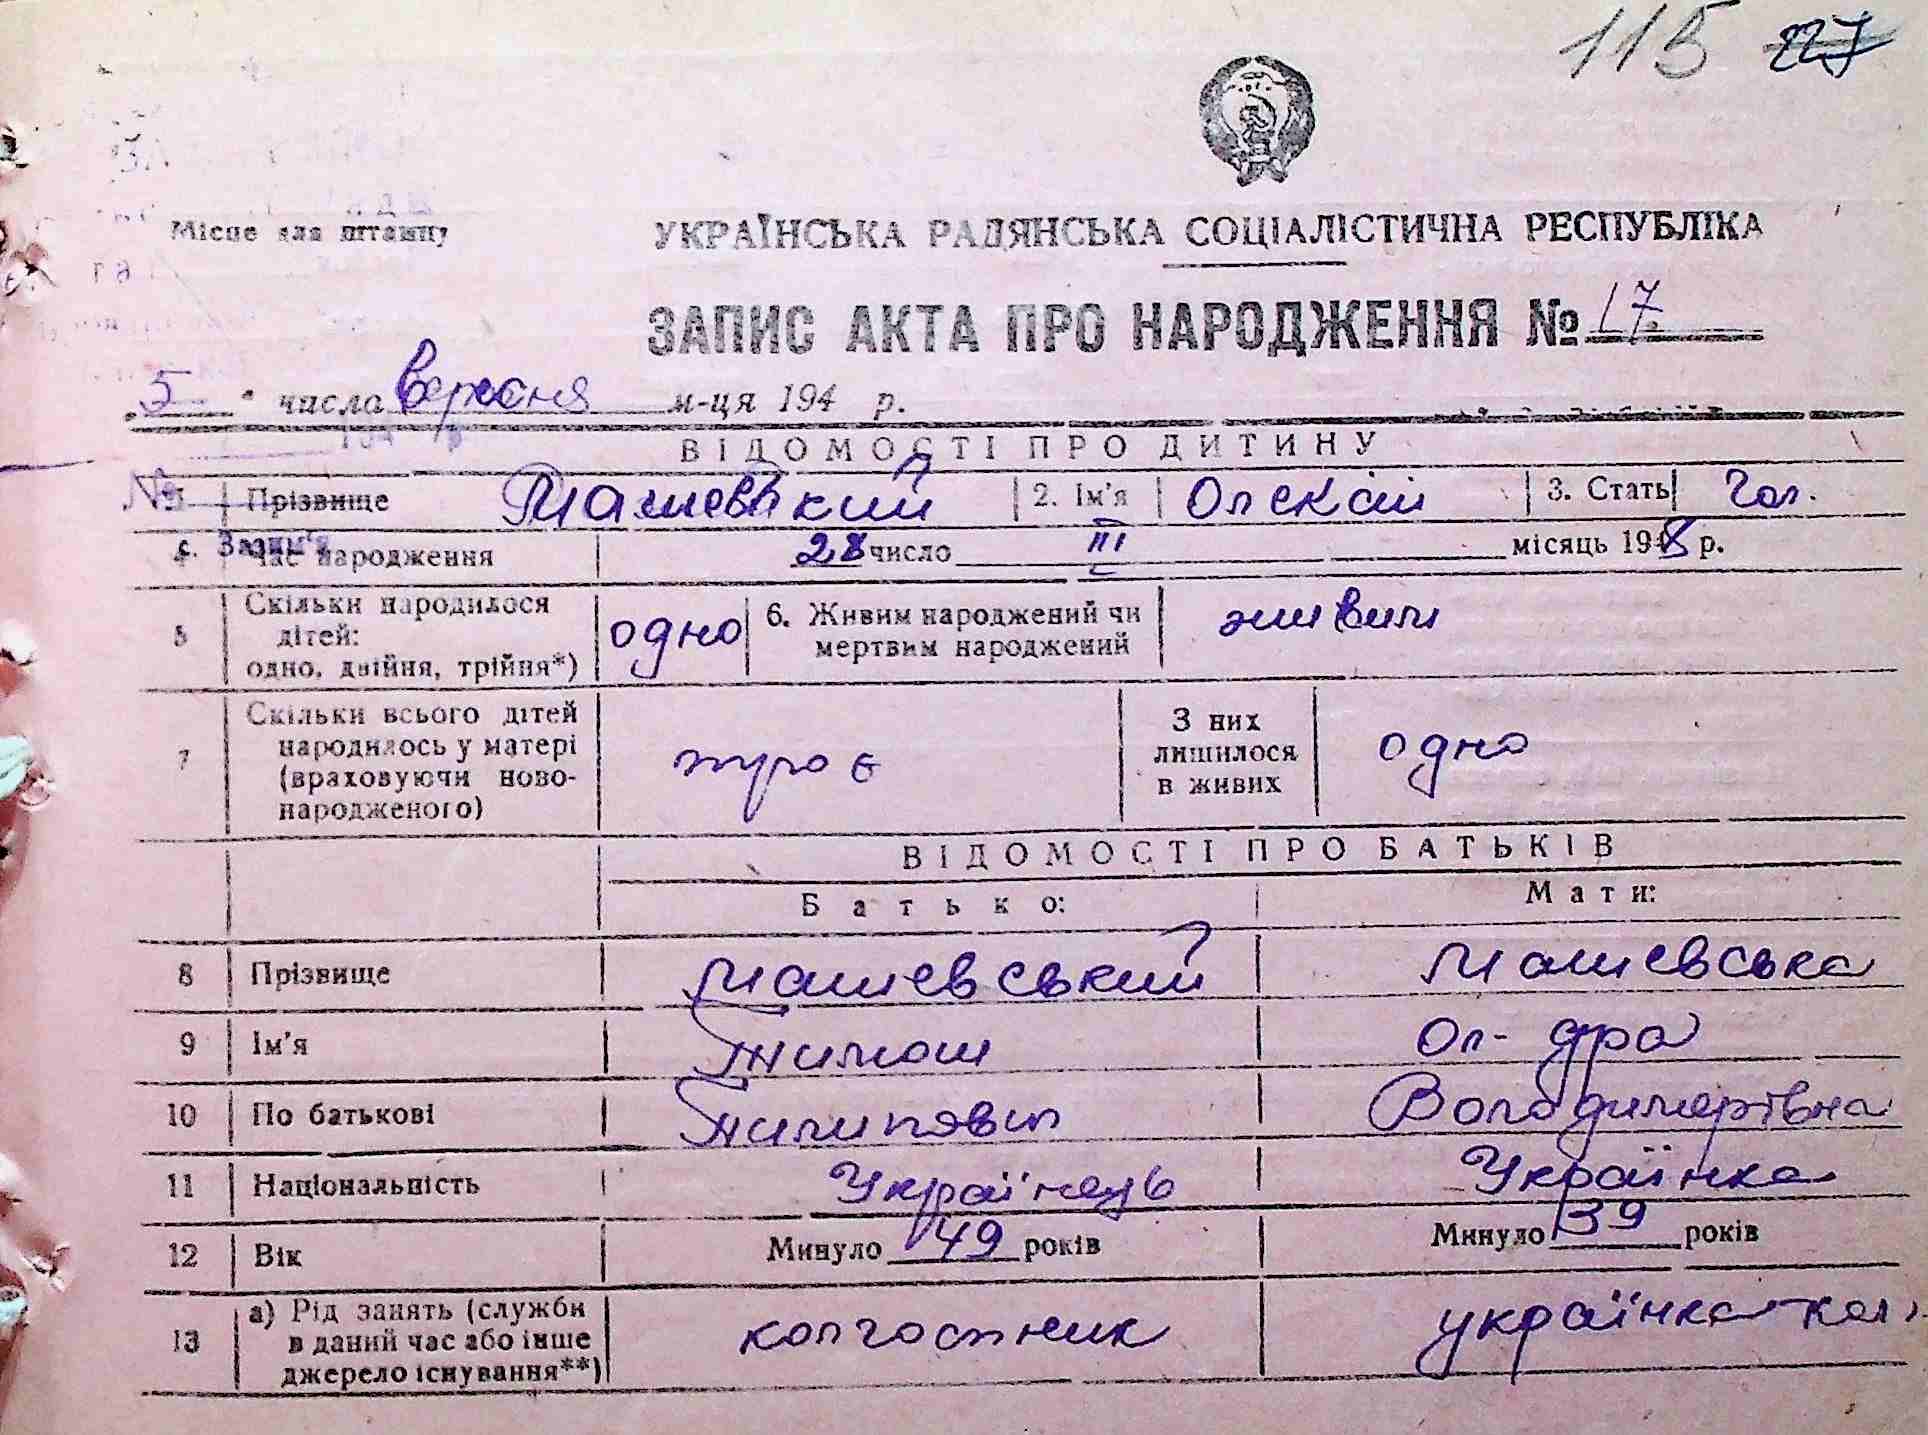 115 117
Місце для штампу
УКРАЇНСЬКА РАДЯНСЬКА СОЦІАЛІСТИЧНА РЕСПУБЛІКА
ЗАПИС АКТА ПРО НАРОДЖЕННЯ № 17
„5" числа вересня м-ця 194 р.
ВІДОМОСТІ ПРО ДИТИНУ
Прізвище Машевський 2. Ім'я Олексій 3. Стать Чол.
4 Час народження 28 число III місяць 1948 р.
5 Скільки народилося дітей: одно, двійня, трійня*) одно 6. Живим народжений чи мертвим народжений живим
7 Скільки всього дітей народилось у матері (враховуючи новонародженого) троє З них лишилося в живих одно
ВІДОМОСТІ ПРО БАТЬКІВ
Батько: Мати:
8 Прізвище Машевський Машевська
9 Ім'я Тимош Ол-дра
10 По батькові Пилипович Володимирівна
11 Національність Українець Українка
12 Вік Минуло 49 років Минуло 39 років
13 а) Рід занять (служби в даний час або інше джерело існування**) колгостник українка кол